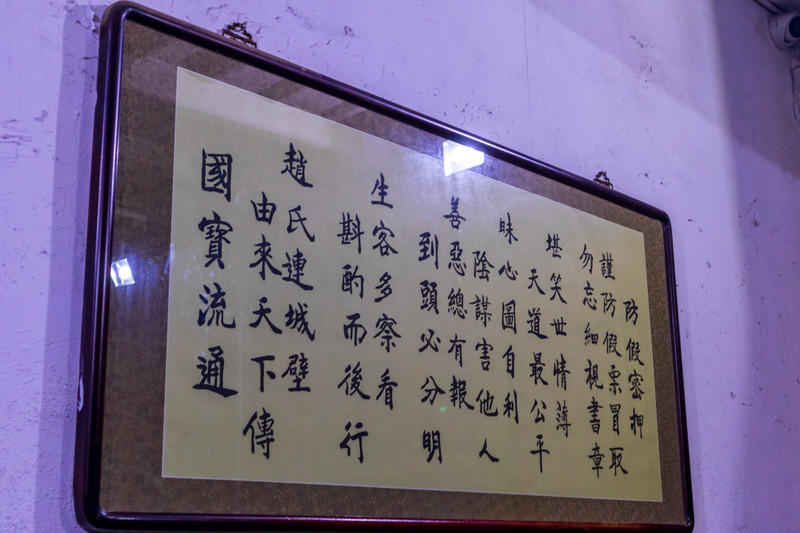 防假密押
謹防假票冒取
勿忘細視書章
堪笑世情薄
天道最公平
昧心圖自利
陰謀害他人
善惡總有報
到頭必分明
生客多察看
斟酌而後行
趙氏連城壁
由來天下傳
國寳流通